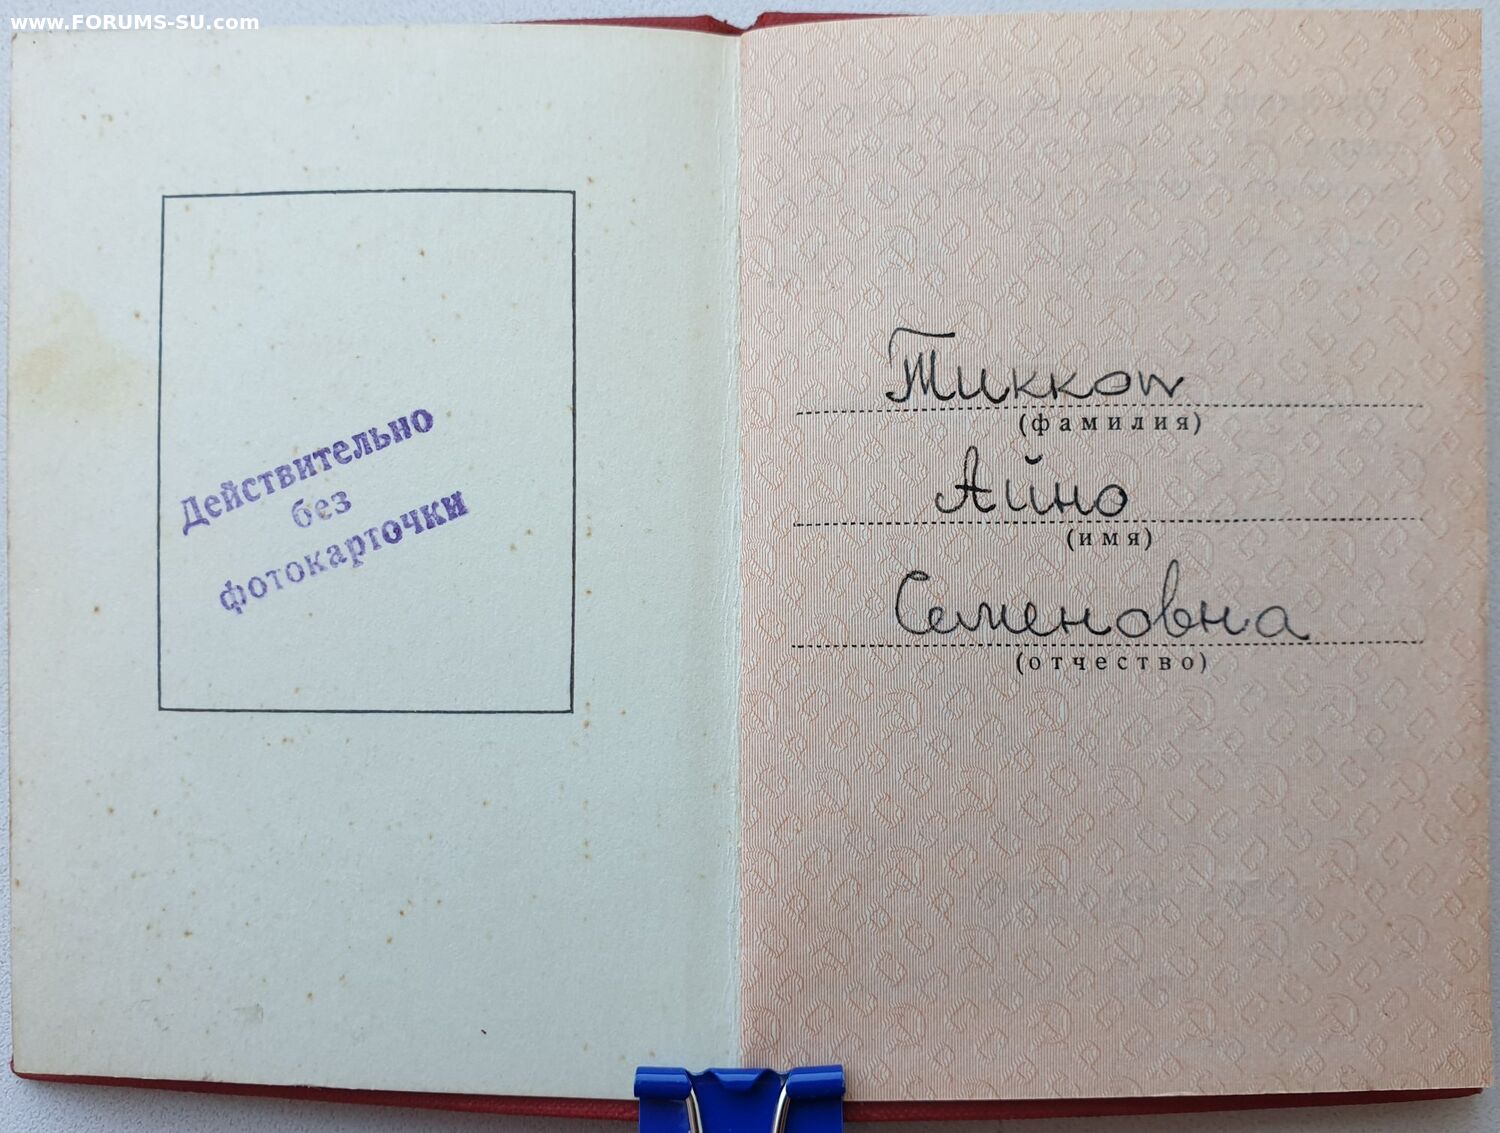 www.FORUMS-SU.com
Действительно
без
фотокарточки
Тиккон
(фамилия)
Айно
(имя)
Семеновна
(отчество)